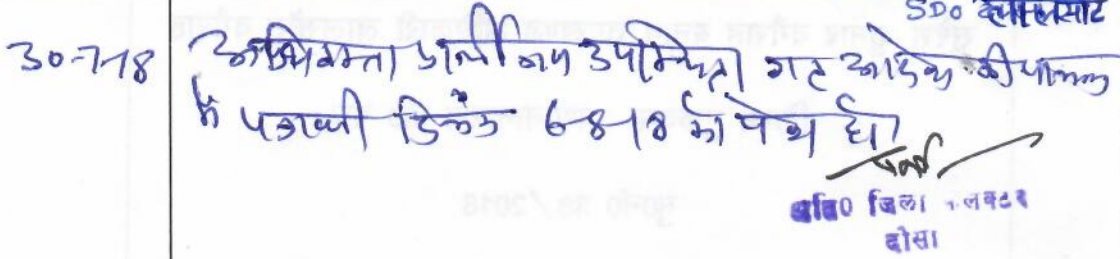 SDO लालसोट
30-7-18 अधिवक्ता प्रार्थीगण उपस्थित। गत आदेश की पालना
में पत्रावली दिनांक 6-8-18 को पेश हो।
अति0 जिला कलक्टर
दौसा